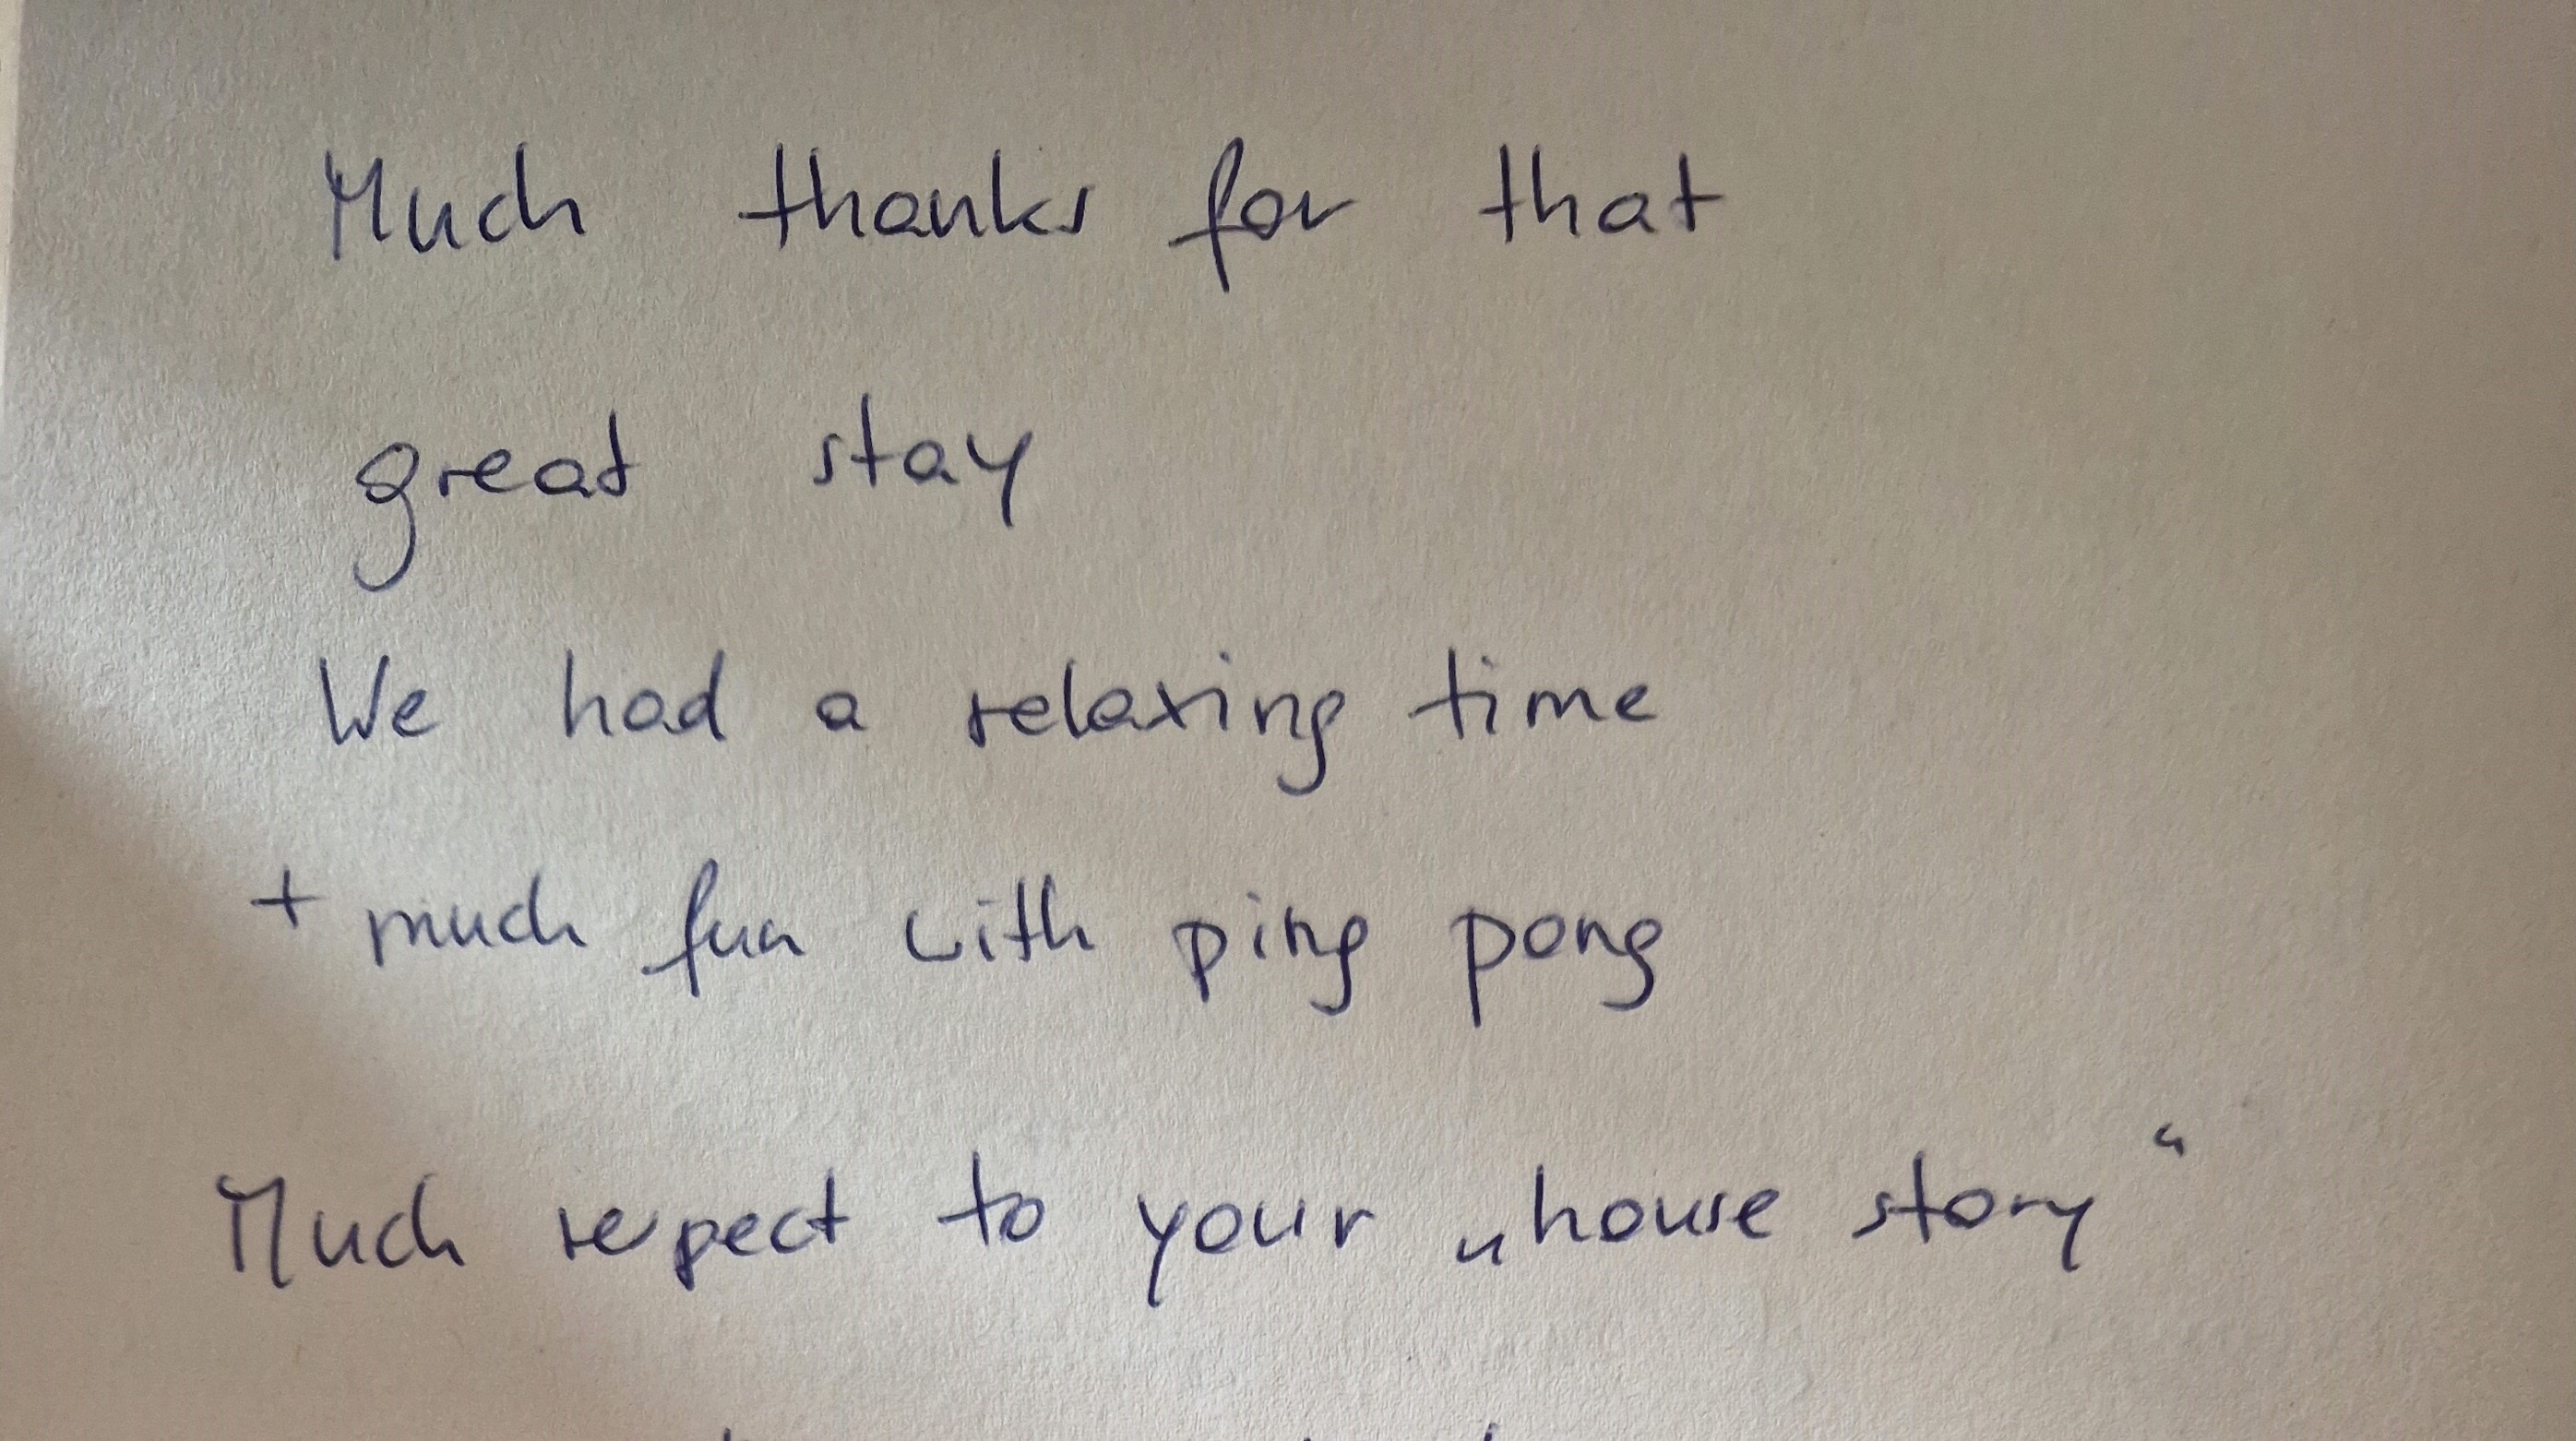 Much thanks for that
great stay
We had a relaxing time
+ much fun with ping pong
Much respect to your „house story“